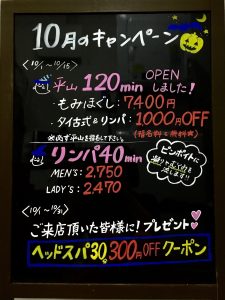 10月のキャンペーン
<10/1~10/15>
平山120min OPENしました!
・もみほぐし:7400円
・タイ古式&リンパ:1000円OFF
(指名料も無料☆)
※必ず平山を指名して下さい。
リンパ40min
MEN'S: 2,750
LADY'S: 2,470
ピンポイトに
流します!!
<10/1~10/31>
ご来店頂いた皆様に!プレゼント♥
ヘッドスパ30分300円OFFクーポン